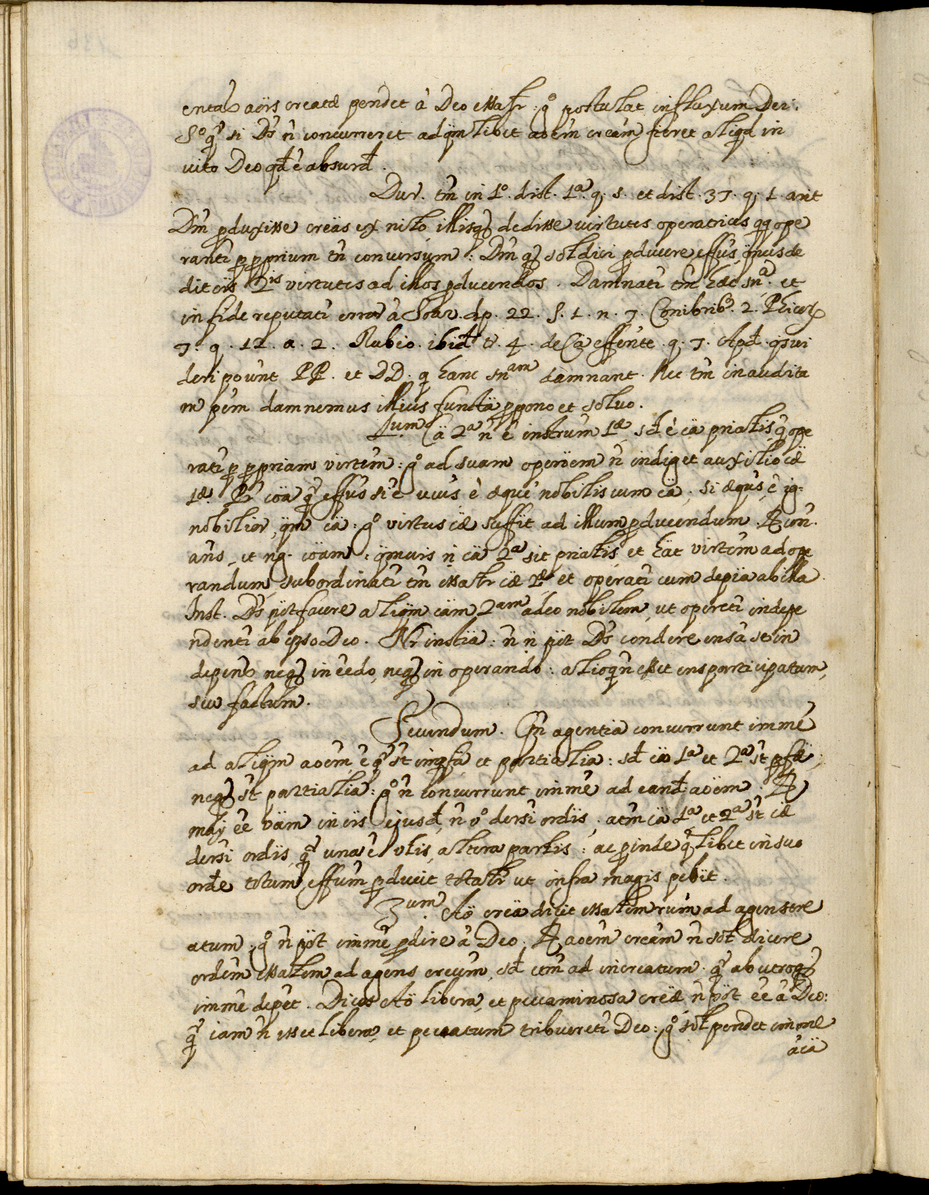 entao aõis creatæ pendet à Deo essalr: gº postulat influxum Dei.
Sº qª si Ds ñ concurreret ad qmlibet aoem cream fieret aliqd in
vito Deo qd ê absurd.
Dur. tm in 1º dist. 1ª q. 5. et dist. 37. q. 1 ait
Dm pduxisse creãs ex nihilo, illisq dedisse virtutes operatrices q ope
ranti p pprium tn conversum: Dm q sol dici pducere effus, qmvis de
derit eis 2is virtutes ad illos pducendos. Damnati tm hæc snª. et
in fide reputati error à Soar. dp. 22. S. 1. n. 7. Conibrib. 2. Phicor
7. q. 12. a. 2. Rubio. ibid tr. 4. de Ca effente q. 7. Apd. qs vi
deri pount PP. et DD. q hanc snam damnant. Nec tm inaudita
m pem damnemus illius functa ppono et solvo.
1um Cã 2ª ñ ê instrum 1æ sd ê cã prialis, q ope
rati p ppriam virtem: gº ad suam operoem ñ indiget auxilio cæ
1æ. Pr coa qª effus si ê univs ê æque nobilis cum cã. si æqus, ê ig-
nobilior qm cã: gº virtus cæ suffit ad illum pducendum. R con.
añs, et ng. coam: qmvis n cã 2ª sit prialis et hat virtem ad ope
randum, subordinati tm essalr cæ 1æ et operati cum depia ab illa.
Inst. Ds pot facere aliqm cam 2am adeo nobilem, ut opereti indepe
ndenti ab ipso Deo. Nr instia: ñ n pot Ds condere ensã st in
depens neq in eedo, neq in operando: alioqn esset ens participatum,
seu factum.
Secundum. Qn agentia concurrunt imme
ad aliqm aoem ê qª st impfa et partialia: sd cæ 1ª et 2ª st pfæ,
neq st partialia: gº ñ concurrunt imme ad eand aoem. R
maj êe vam in eis ejusd, ñ vº dersi ordis. atm cã 1ª et 2ª st cæ
dersi ordis, qª una ê vlis, altera parlis: ac pinde qlibet in suo
orde totum effum pducit totalr ut infra magis pebit.
3um. Aõ creã dicit essalem rum ad agens cre
atum. gº ñ pot imme pdire à Deo. R aoem cream ñ sol dicere
ordem essalem ad agens creum, sd etm ad increatum. qª ab utroq
imme depet. Dices Aõ libera, et peccaminosa creæ ñ pot êe à Deo:
qª iam ñ esset libera, et peccatum tribuereti Deo: gº sol pendet imme
à cã